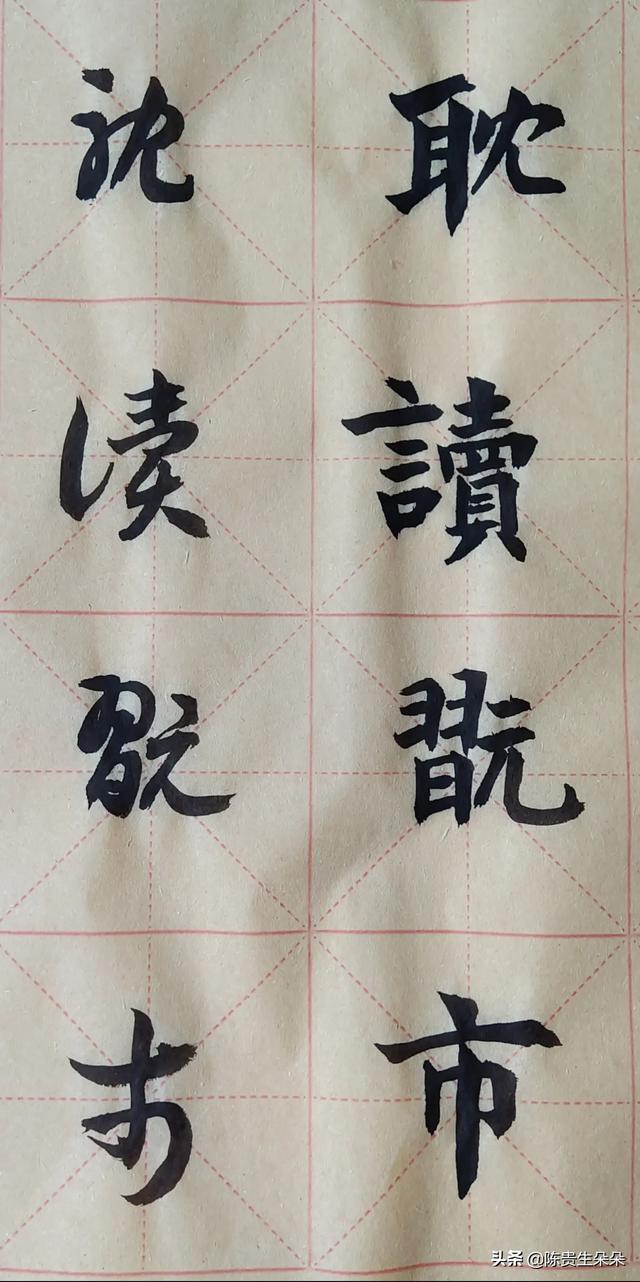 耽讀翫市
耽读翫市
头条 @陈贵生朵朵